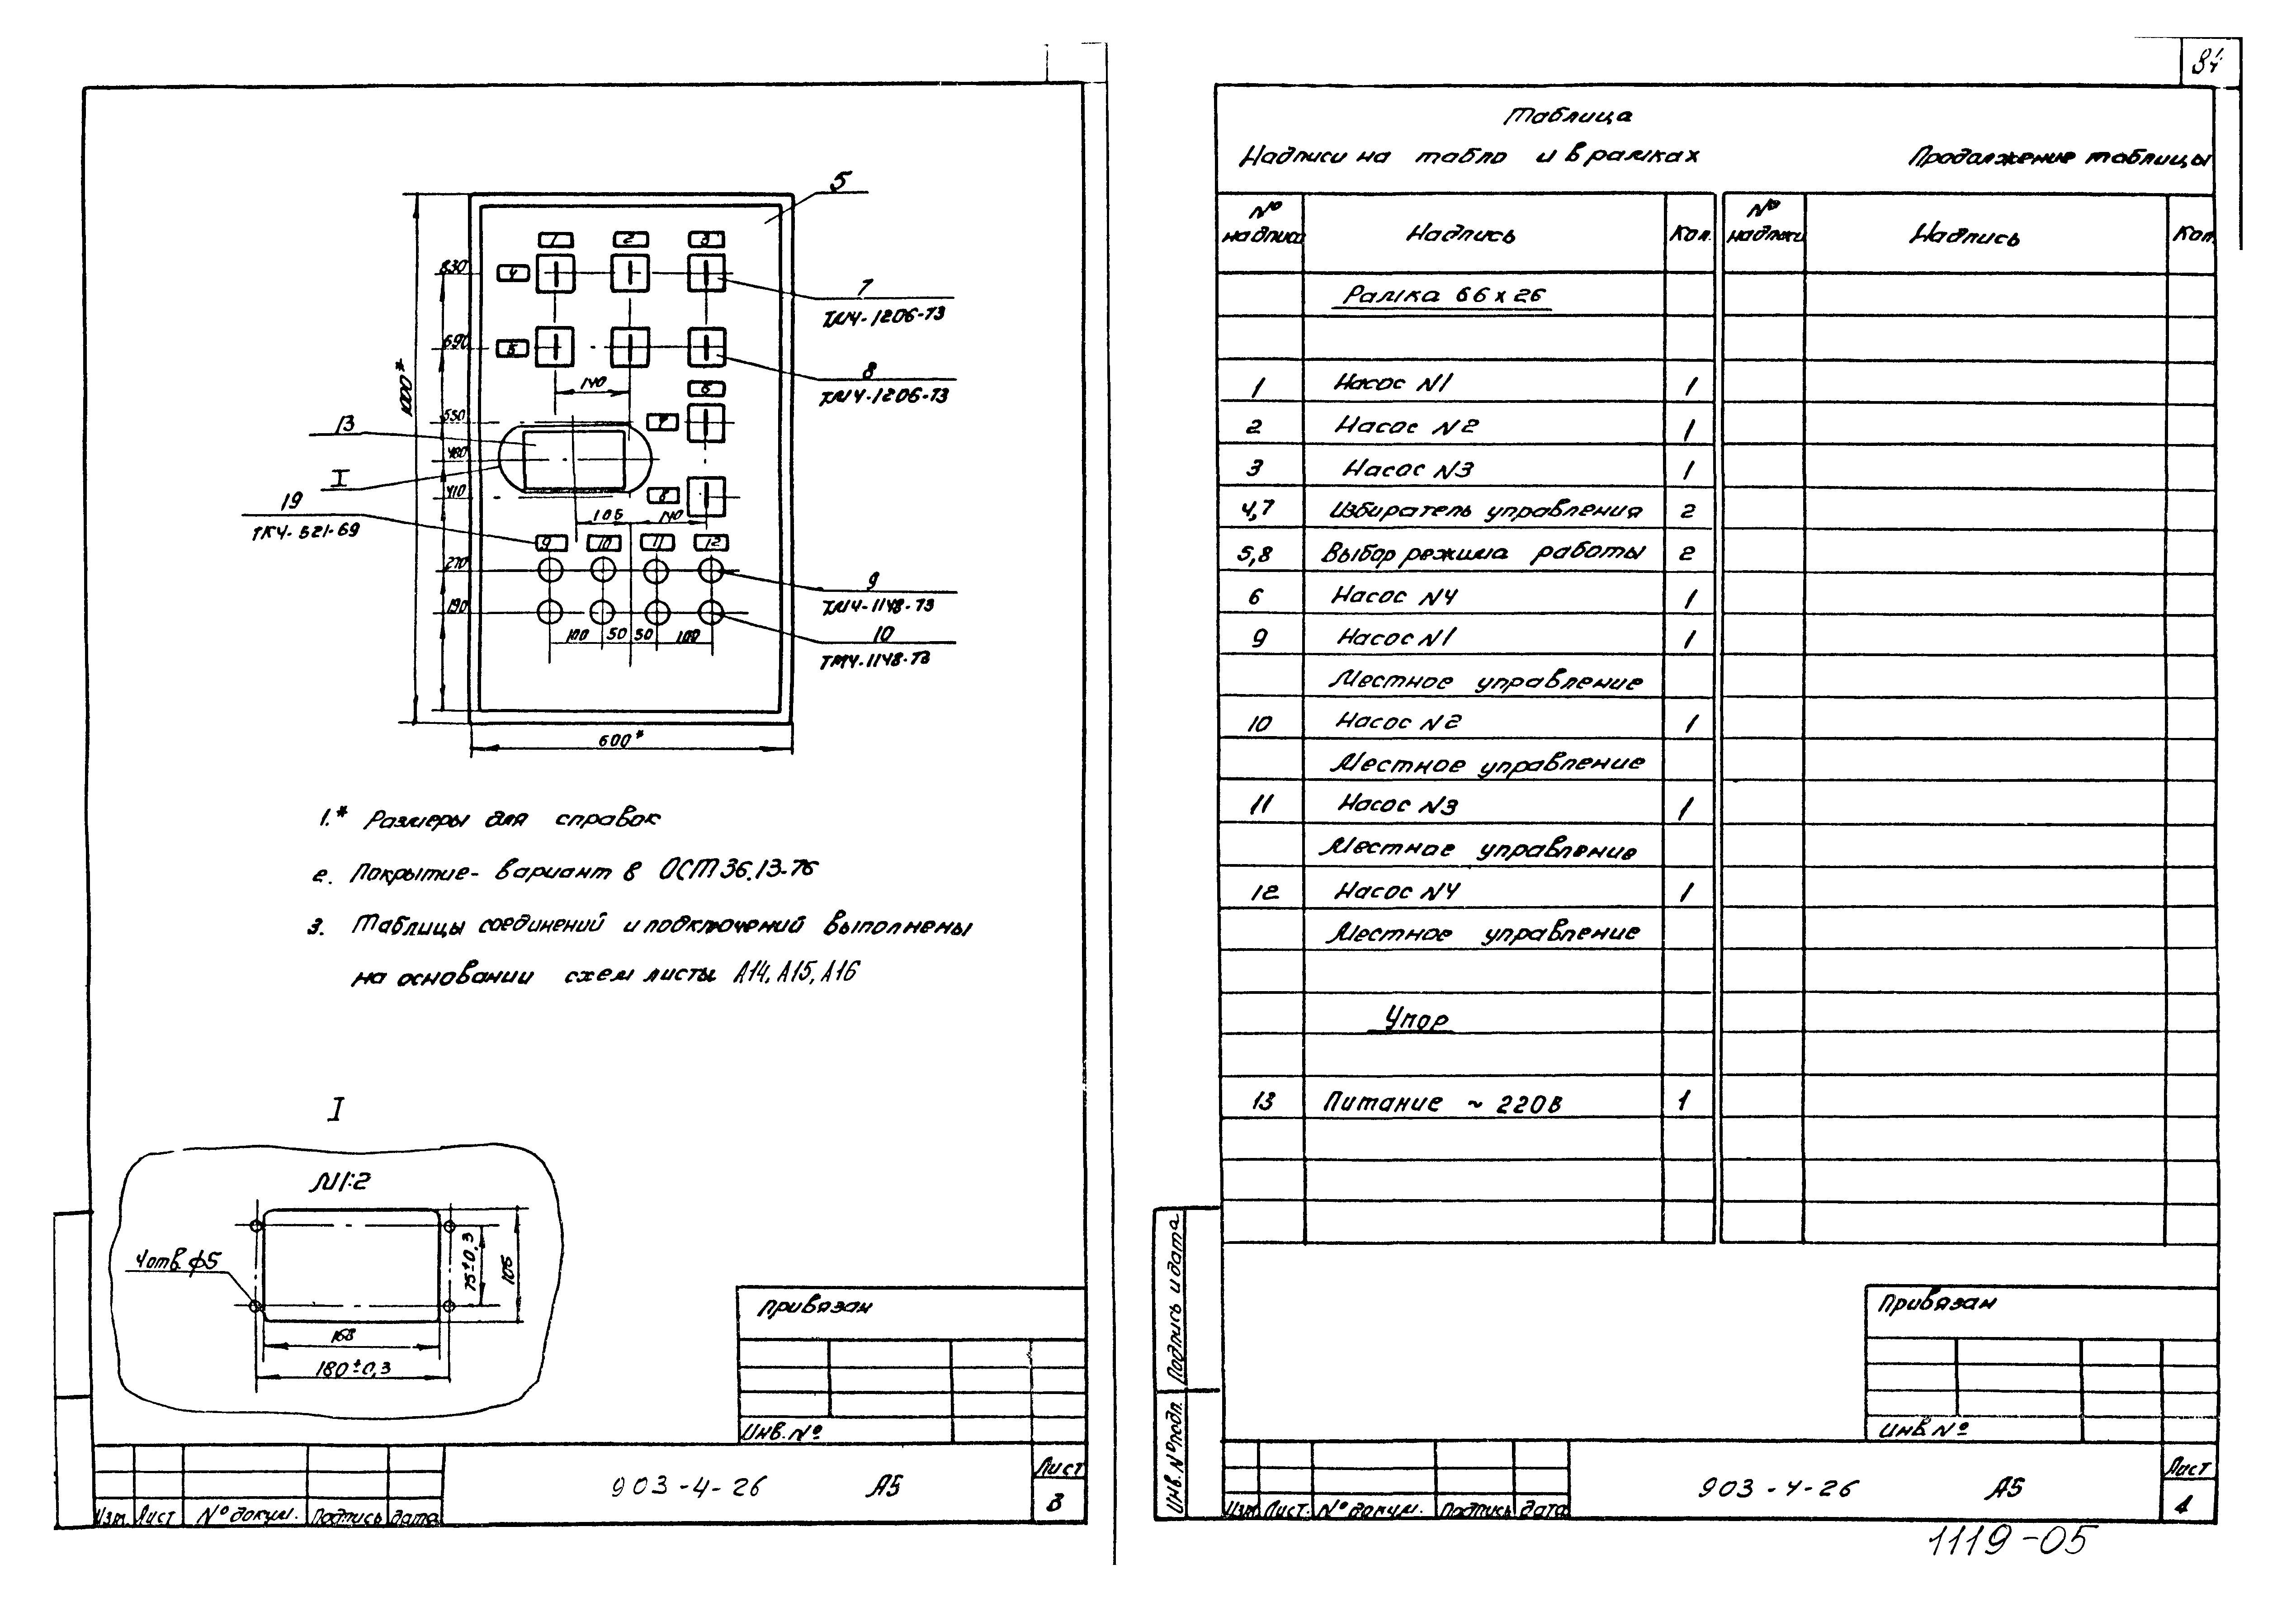 5
1 2 3
4
830
7
ТМ4-1206-73
5
690
8
ТМ4-1206-73
140
1000*
6
550
7
13
480
I
410
8
19
ТК4-521-69
105 140
9 10 11 12
270
9
ТМ4-1148-73
190
10
ТМ4-1148-73
100 50 50 100
600*
1.* Размеры для справок
2. Покрытие- вариант в ОСТ 36.13-76
3. Таблицы соединений и подключений выполнены
на основании схем листы А14, А15, А16
I
М1:2
4отв. ф5
75±0,3
106
168
180±0,3
Привязан
Инв. №
Изм. Лист № докум. Подпись дата
903-4-26 А5
Лист
3
34
Таблица
Надписи на табло и в рамках
Продолжение таблицы
№ надписи Надпись Кол. № надписи Надпись Кол.
Рамка 66 x 26
1 Насос N1 1
2 Насос N2 1
3 Насос N3 1
4,7 Избиратель управления 2
5,8 Выбор режима работы 2
6 Насос N4 1
9 Насос N1 1
Местное управление
10 Насос N2 1
Местное управление
11 Насос N3 1
Местное управление
12 Насос N4 1
Местное управление
Упор
13 Питание ~ 220В 1
Подпись и дата
Инв. № подп.
Привязан
Инв №
Изм Лист. № докум. Подпись дата
903-4-26 А5
Лист
4
1119-05